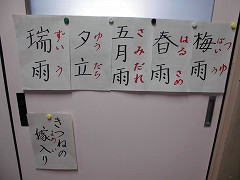 梅雨
ばいう
つゆ
春雨
はるさめ
五月雨
さみだれ
夕立
ゆうだち
瑞雨
ずいう
きつねの
嫁入り